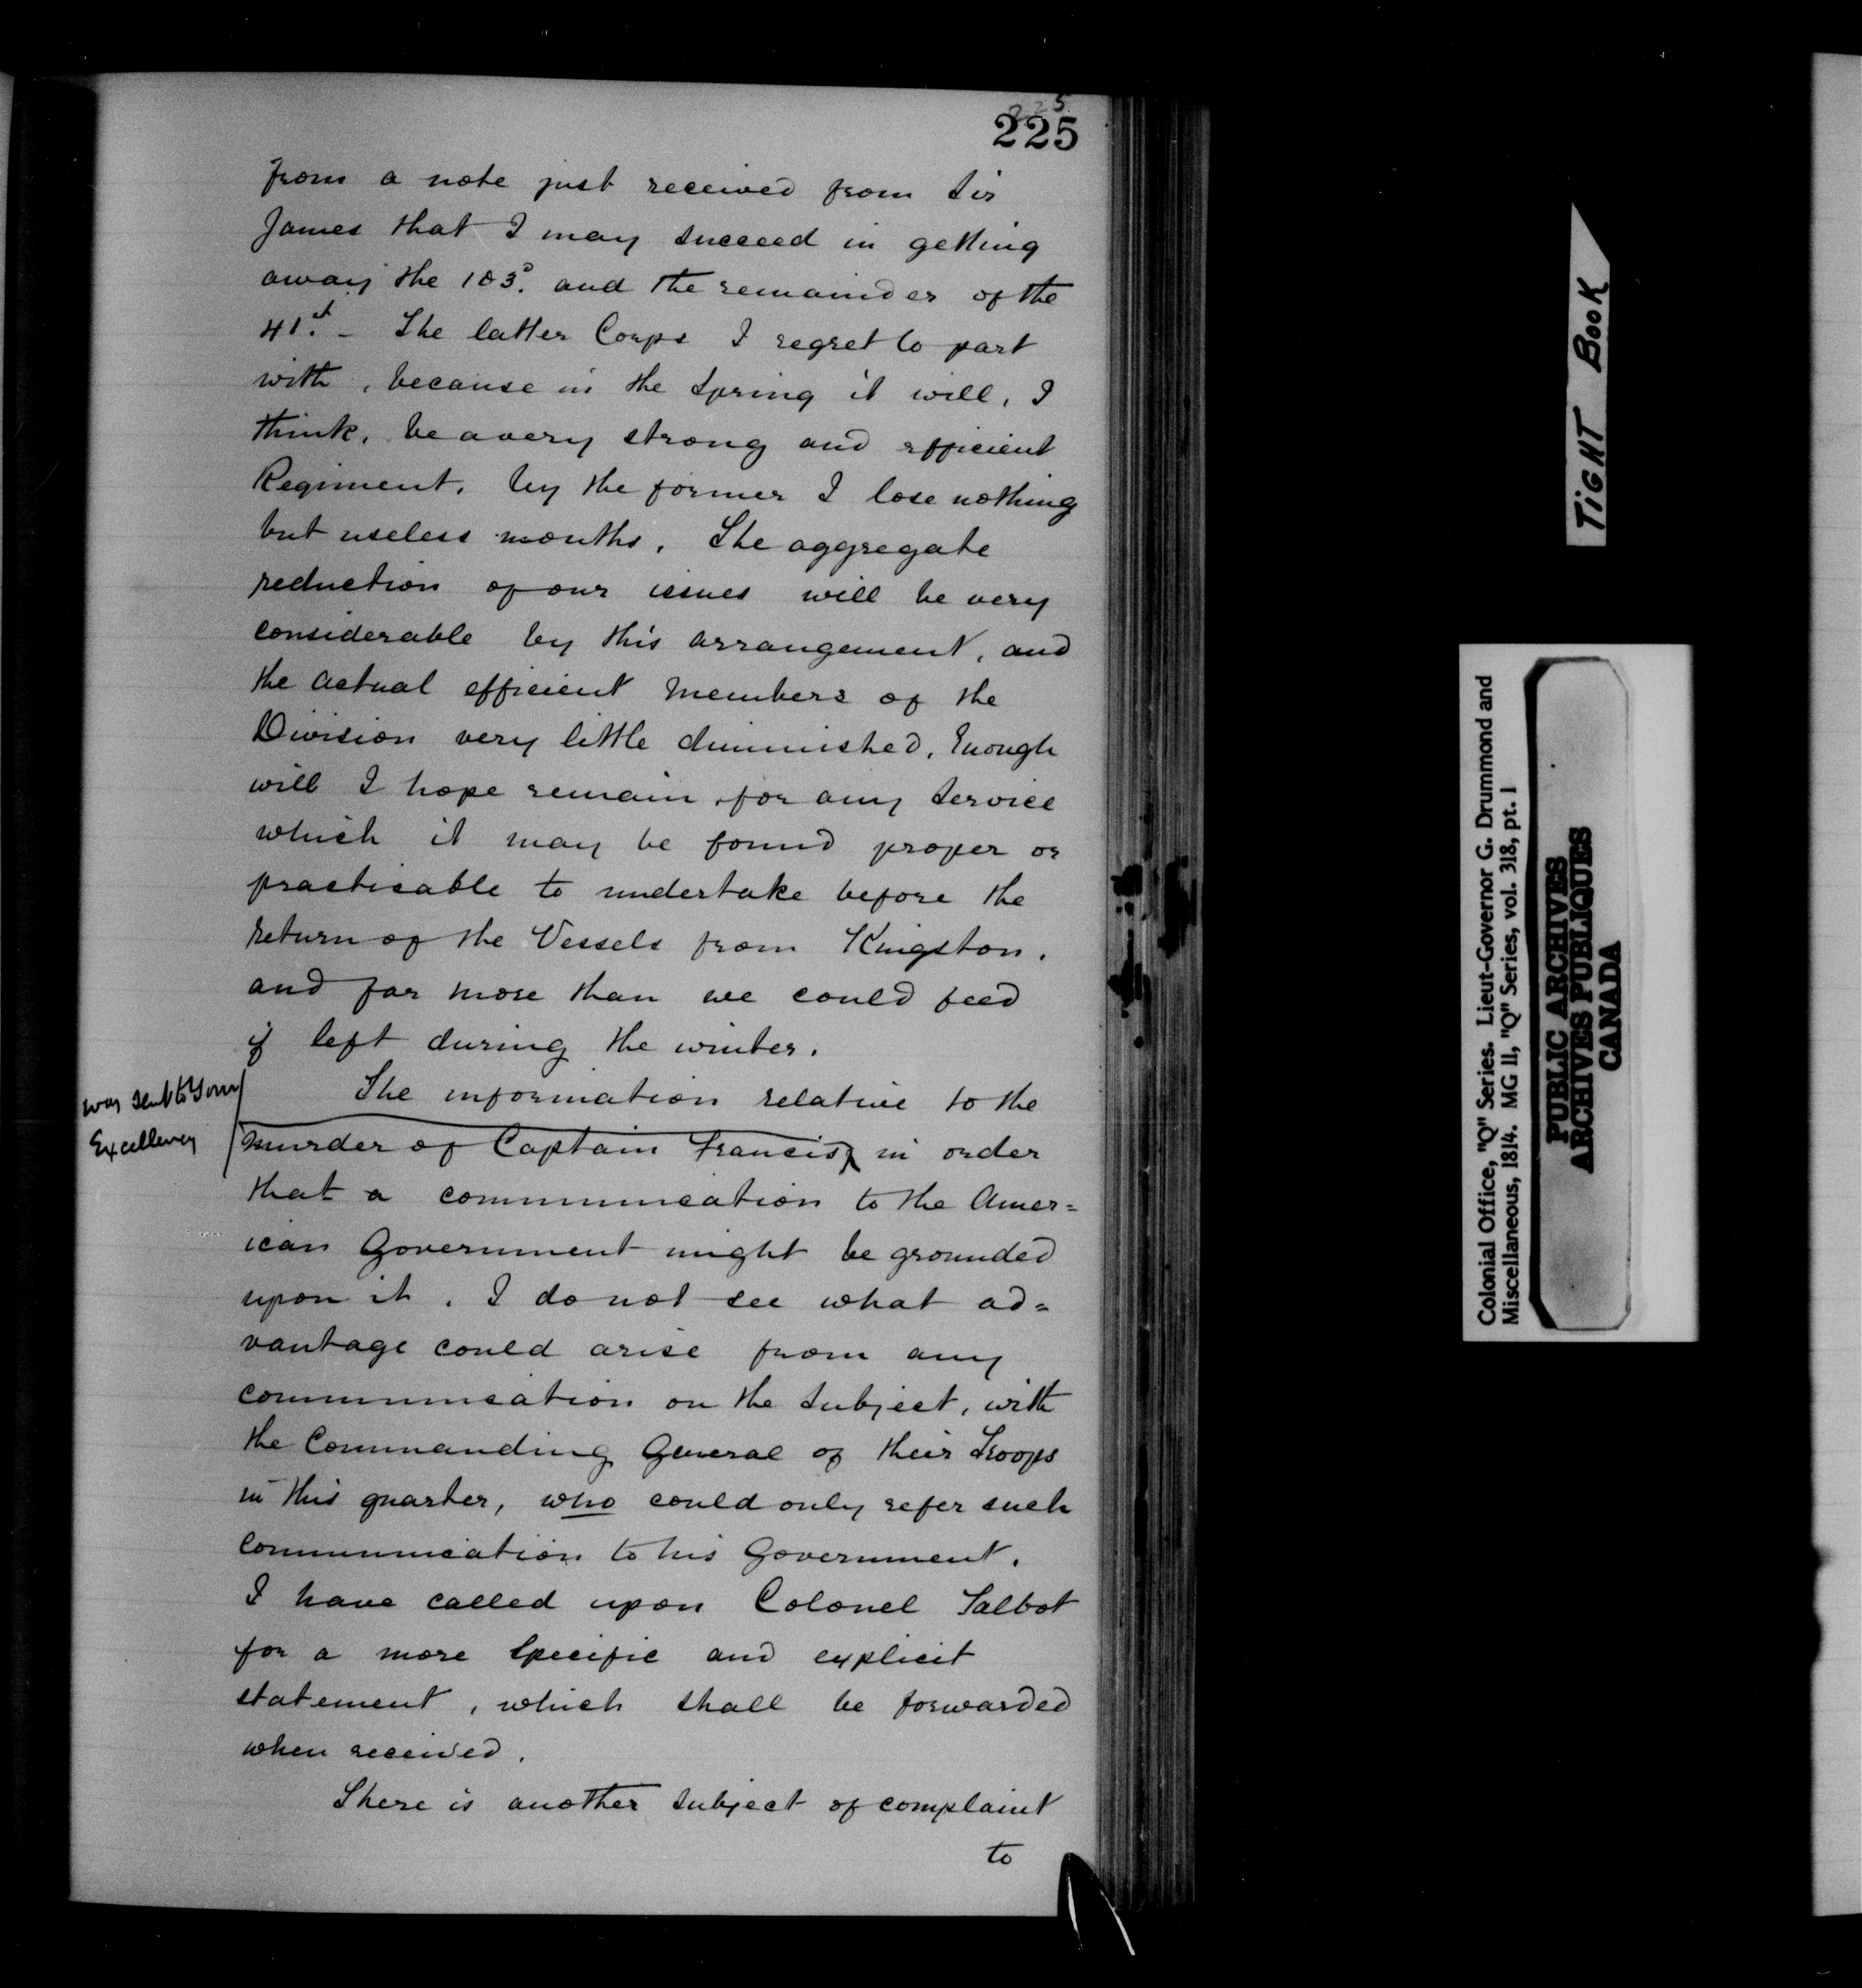 225
225
from a note just received from Sir
James that I may succeed in getting
away the 103d. and the remainder of the
41st. – The latter Corps I regret to part
with, because in the Spring it will, I
think, be a very strong and efficient
Regiment, by the former I lose nothing
but useless mouths. The aggregate
reduction of our issues will be very
considerable by this arrangement, and
the actual efficient members of the
Division very little diminished. Enough
will I hope remain for any Service
which it may be found proper or
practicable to undertake before the
return of the Vessels from Kingston,
and far more than we could feed
if left during the winter.
The information relative to the
was sent to Your
Excellency
murder of Captain Francis, in order
that a communication to the Amer=
ican Government might be grounded
upon it. I do not see what ad=
vantage could arise from any
communication on the Subject, with
the Commanding General of their Troops
in this quarter, who could only refer such
communication to his Government.
I have called upon Colonel Talbot
for a more specific and explicit
statement, which shall be forwarded
when received.
There is another Subject of complaint
to
TIGHT BOOK
Colonial Office, "Q" Series. Lieut-Governor G. Drummond and
Miscellaneous, 1814. MG 11, "Q" Series, vol. 318, pt. 1
PUBLIC ARCHIVES
ARCHIVES PUBLIQUES
CANADA